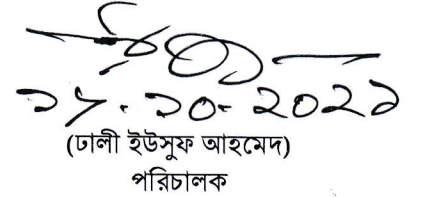 ১৮.১০.২০২১
(ঢালী ইউসুফ আহমেদ)
পরিচালক